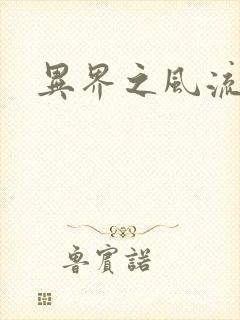 異界之風流
魯賓諾